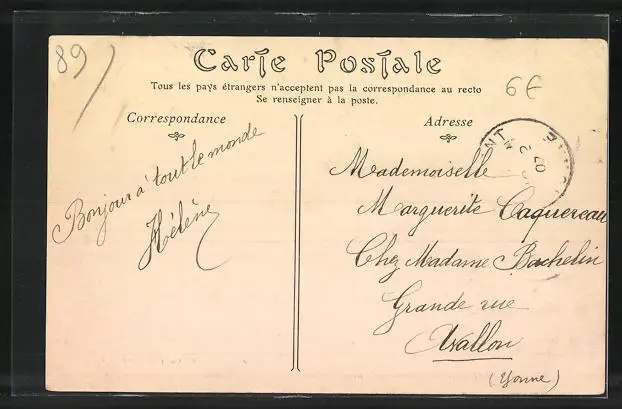 89
Carte Postale
6€
Tous les pays étrangers n'acceptent pas la correspondance au recto
Se renseigner à la poste.
Correspondance
Adresse
Bonjour à tout le monde
Hélène
Mademoiselle
Marguerite Caquereau
Chez Madame Bachelin
Grande rue
Avallon
(Yonne)